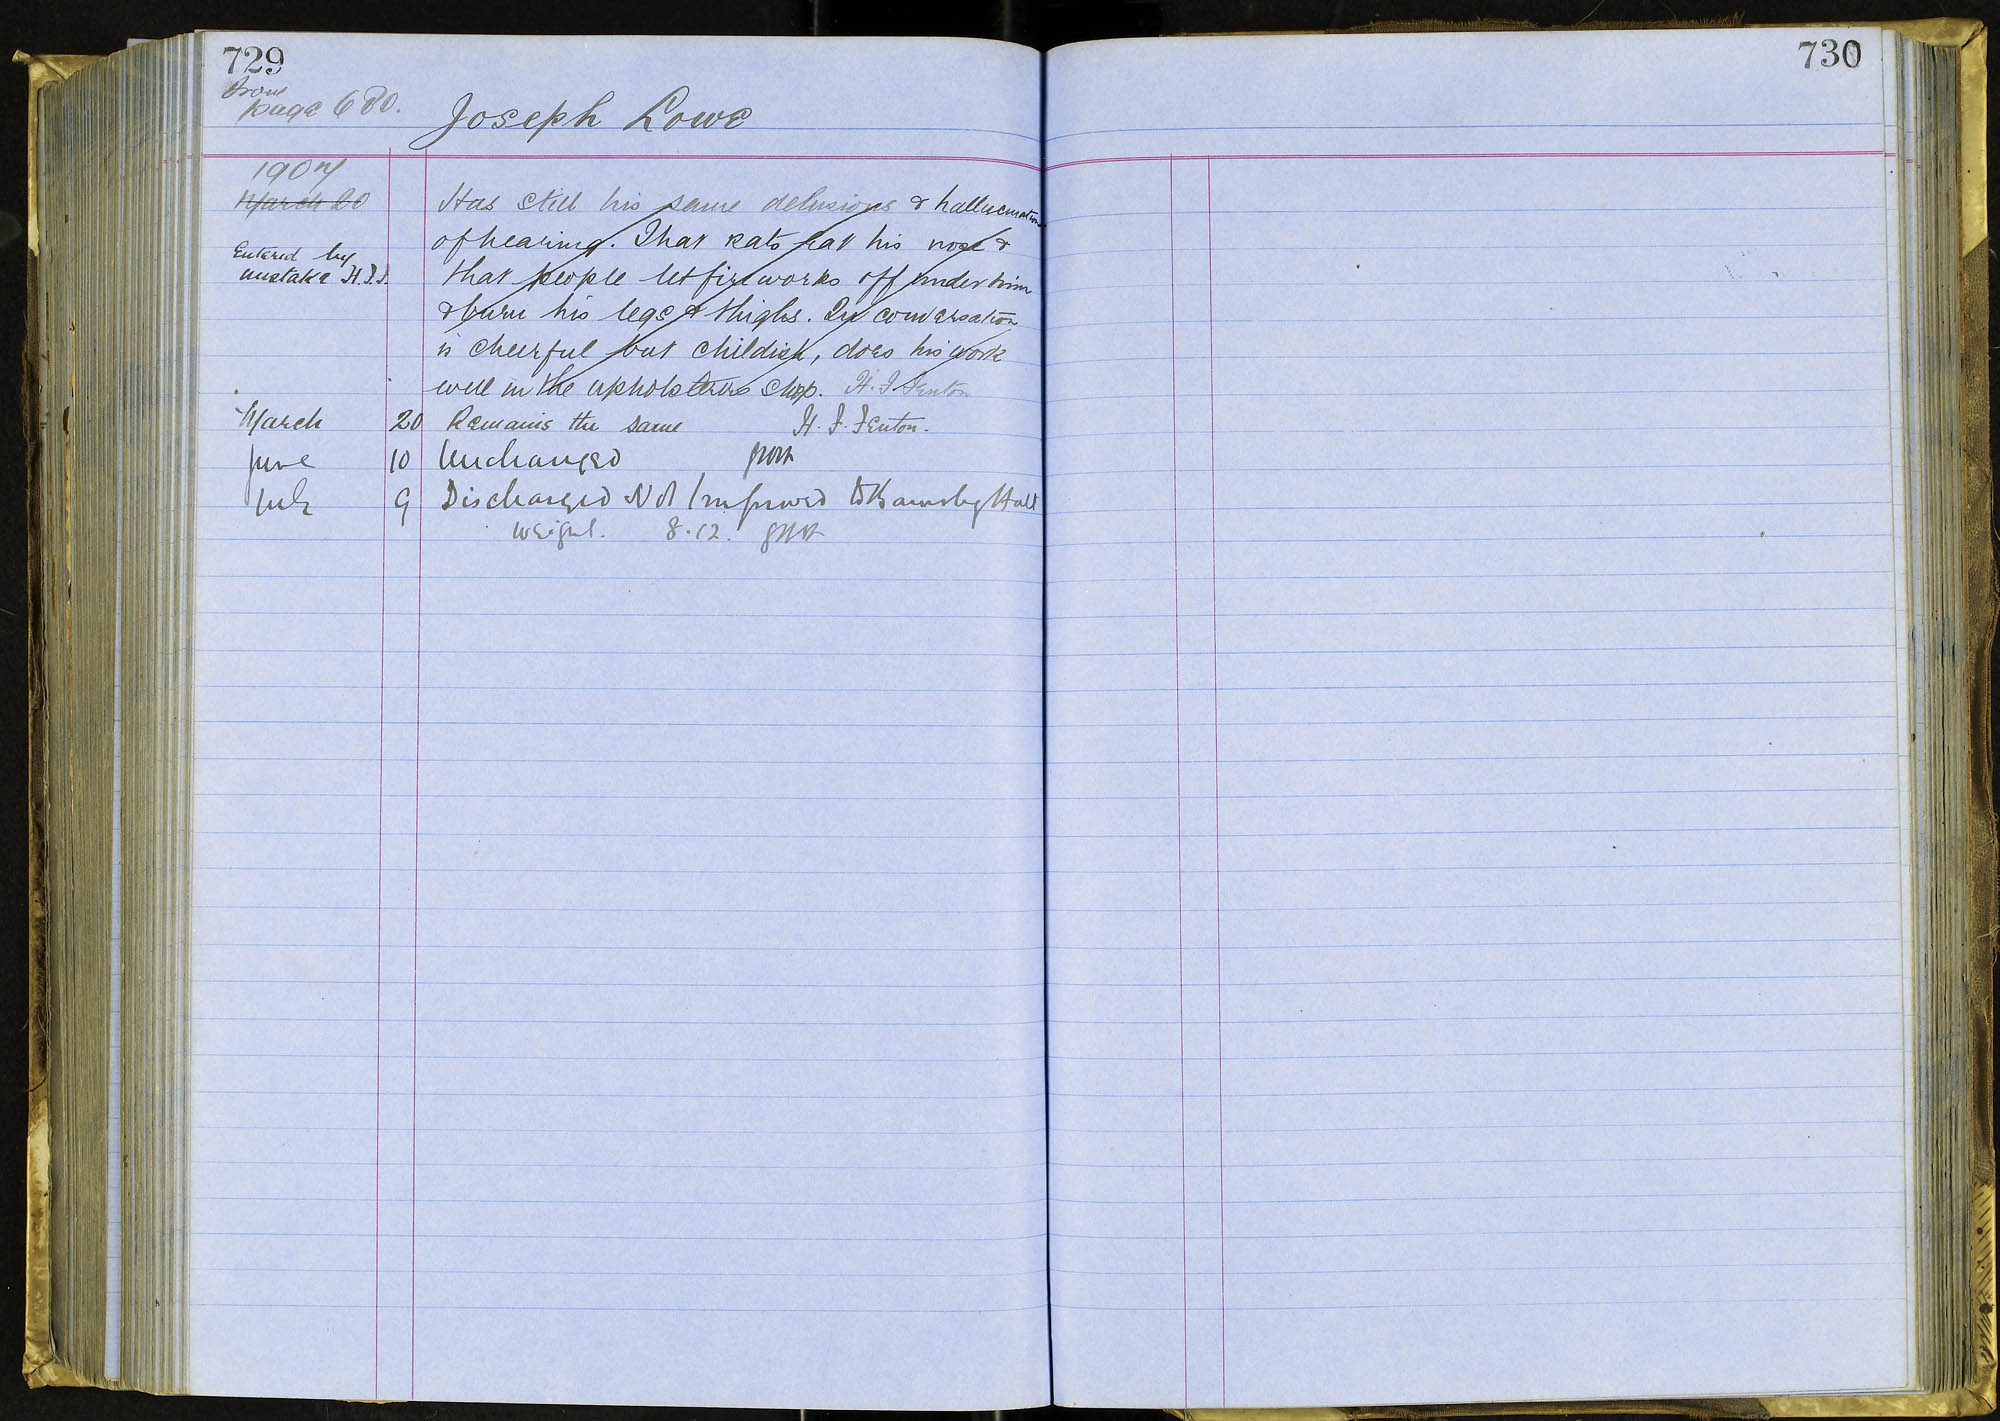 729
from
page 680.
Joseph Lowe
1907
March 20
Has still his same delusions & hallucinations
of hearing. That rats eat his nose &
Entered by
mistake H.F.F.
that people let fireworks off under him
& burn his legs & thighs. In conversation
is cheerful but childish, does his work
well in the upholsterers shop. H. F. Fenton
March 20 Remains the same H. F. Fenton.
June 10 Unchanged
July 9 Discharged Not Improved to Barnsley Hall
Weight. 8.12.
730